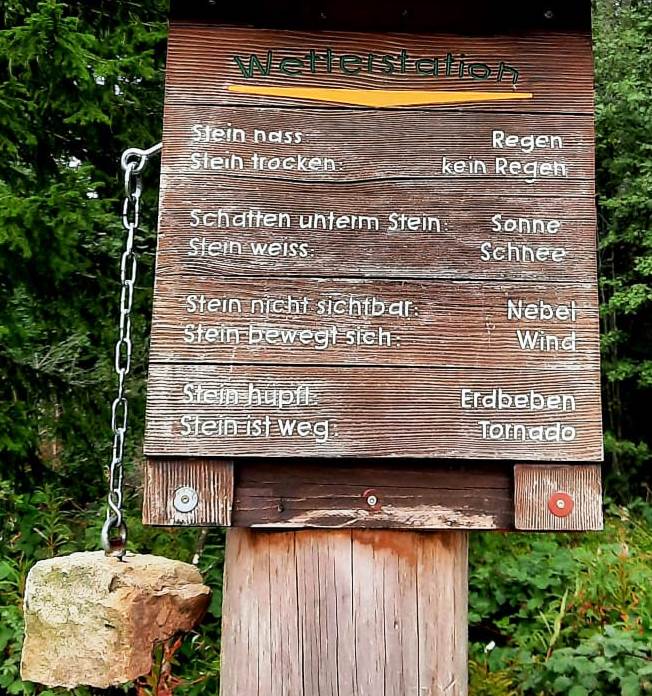 Wetterstation
Stein nass: Regen
Stein trocken: kein Regen
Schatten unterm Stein: Sonne
Stein weiss: Schnee
Stein nicht sichtbar: Nebel
Stein bewegt sich: Wind
Stein hüpft: Erdbeben
Stein ist weg: Tornado